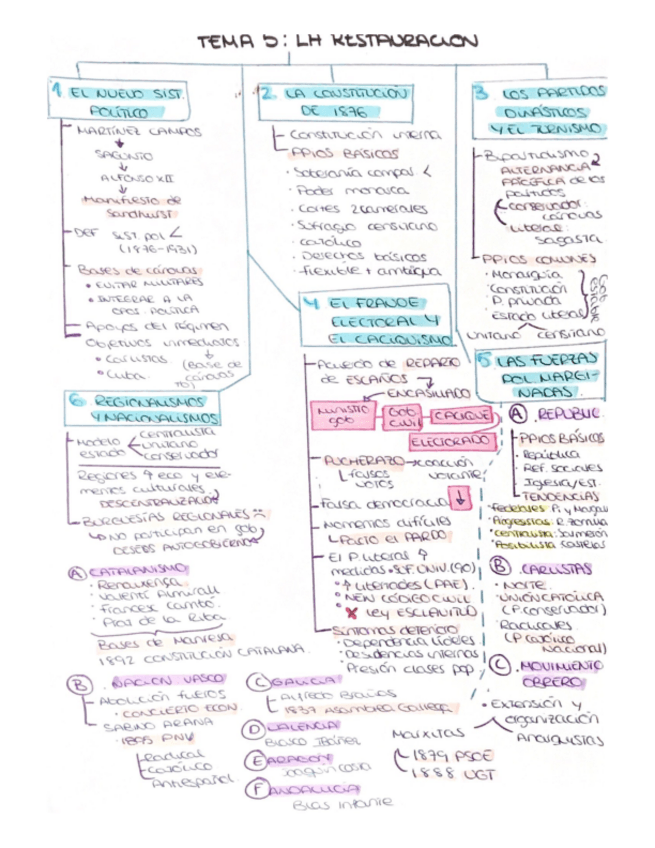 TEMA 5: LA RESTAURACION
1. EL NUEVO SIST.
POLÍTICO
MARTÍNEZ CAMPOS
SAGUNTO
ALFONSO XII
Manifiesto de
Sandhurst
DEF SIST. POL
(1876-1931)
Bases de cánovas
EVITAR MILITARES
INTEGRAR A LA
OPOS. POLÍTICA
Apoyos del régimen
Objetivos inmediatos
Carlistas
Cuba
(Base de
cánovas
2. LA CONSTITUCIÓN
DE 1876
Constitución interna
PPIOS BÁSICOS
Soberanía compar.
Poder monarca
Cortes 2camerales
Sufragio censitario
católico
Derechos básicos
flexible + ambigua
3. LOS PARTIDOS
DINÁSTICOS
Y EL TURNISMO
Bipartidismo
ALTERNANCIA
PACÍFICA de los
partidos
conservador:
cánovas
Liberal:
Sagasta
PPIOS COMUNES
Monarquía
Constitución
P. privada
Estado liberal
Gob
estable
unitario censitario
4 EL FRAUDE
ELECTORAL Y
EL CACIQUISMO
Acuerdo de REPARTO
de ESCAÑOS
ENCASILLADO
MINISTRO
gob
Gob
Civil
CACIQUE
ELECTORADO
PUCHERAZO → coacción
votante
falsos
votos
Falsa democracia ↓
Momentos difíciles
PACTO EL PARDO
El P. liberal
medidas • SUF. UNIV. (90)
Libertades
NEW CÓDIGO CIVIL
X LEY ESCLAVITUD
Síntomas deterioro
Dependencia líderes
Disidencias internas
Presión clases pop.
5 LAS FUERZAS
POL. MARGI-
NADAS
A .REPUBLIC
PPIOS BÁSICOS
República
Ref. sociales
Iglesia/Est.
TENDENCIAS
Federales: Pi y Margall
Progresistas: R. Zorrilla
Centralista: Salmerón
Posibilista: Castelar
B .CARLISTAS
NORTE
UNIÓN CATÓLICA
(P. conservador)
Radicales
(P. católico
Nacional)
C .MOVIMIENTO
OBRERO
Extensión y
organización
Anarquistas
Marxistas
1879 PSOE
1888 UGT
6. REGIONALISMOS
Y NACIONALISMOS
Modelo
estado
centralista
unitario
conservador
Regiones ↑ eco y ele-
mentos culturales
DESCENTRALIZACIÓN
BURGUESÍAS REGIONALES
No participan en gob
DESEOS AUTOGOBIERNO
A CATALANISMO
Renaixença
Valentí Almirall
Francesc Cambó
Prat de la Riba
Bases de Manresa
1892 CONSTITUCIÓN CATALANA
B .NACION. VASCO
Abolición fueros
CONCIERTO ECON.
SABINO ARANA
1895 PNV
Radical
Católico
Antiespañol
C GALICIA
Alfredo Brañas
Asamblea Gallega
D VALENCIA
Blasco Ibáñez
E ARAGON
Joaquín Costa
F ANDALUCÍA
Blas Infante